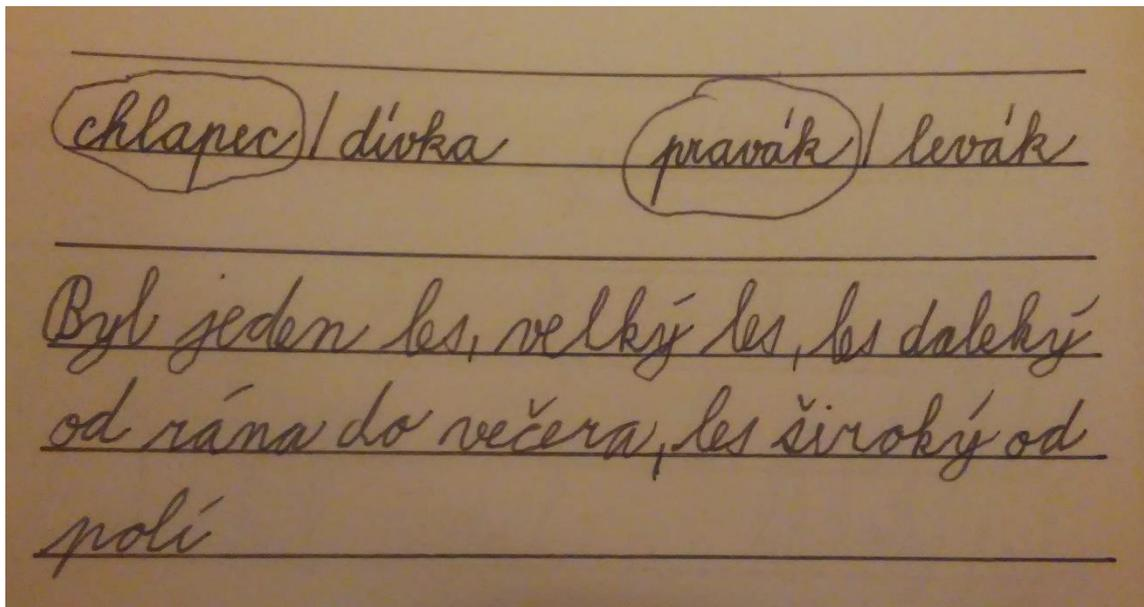 chlapec / dívka pravák / levák
Byl jeden les, velký les, les daleký
od rána do večera, les široký od
polí